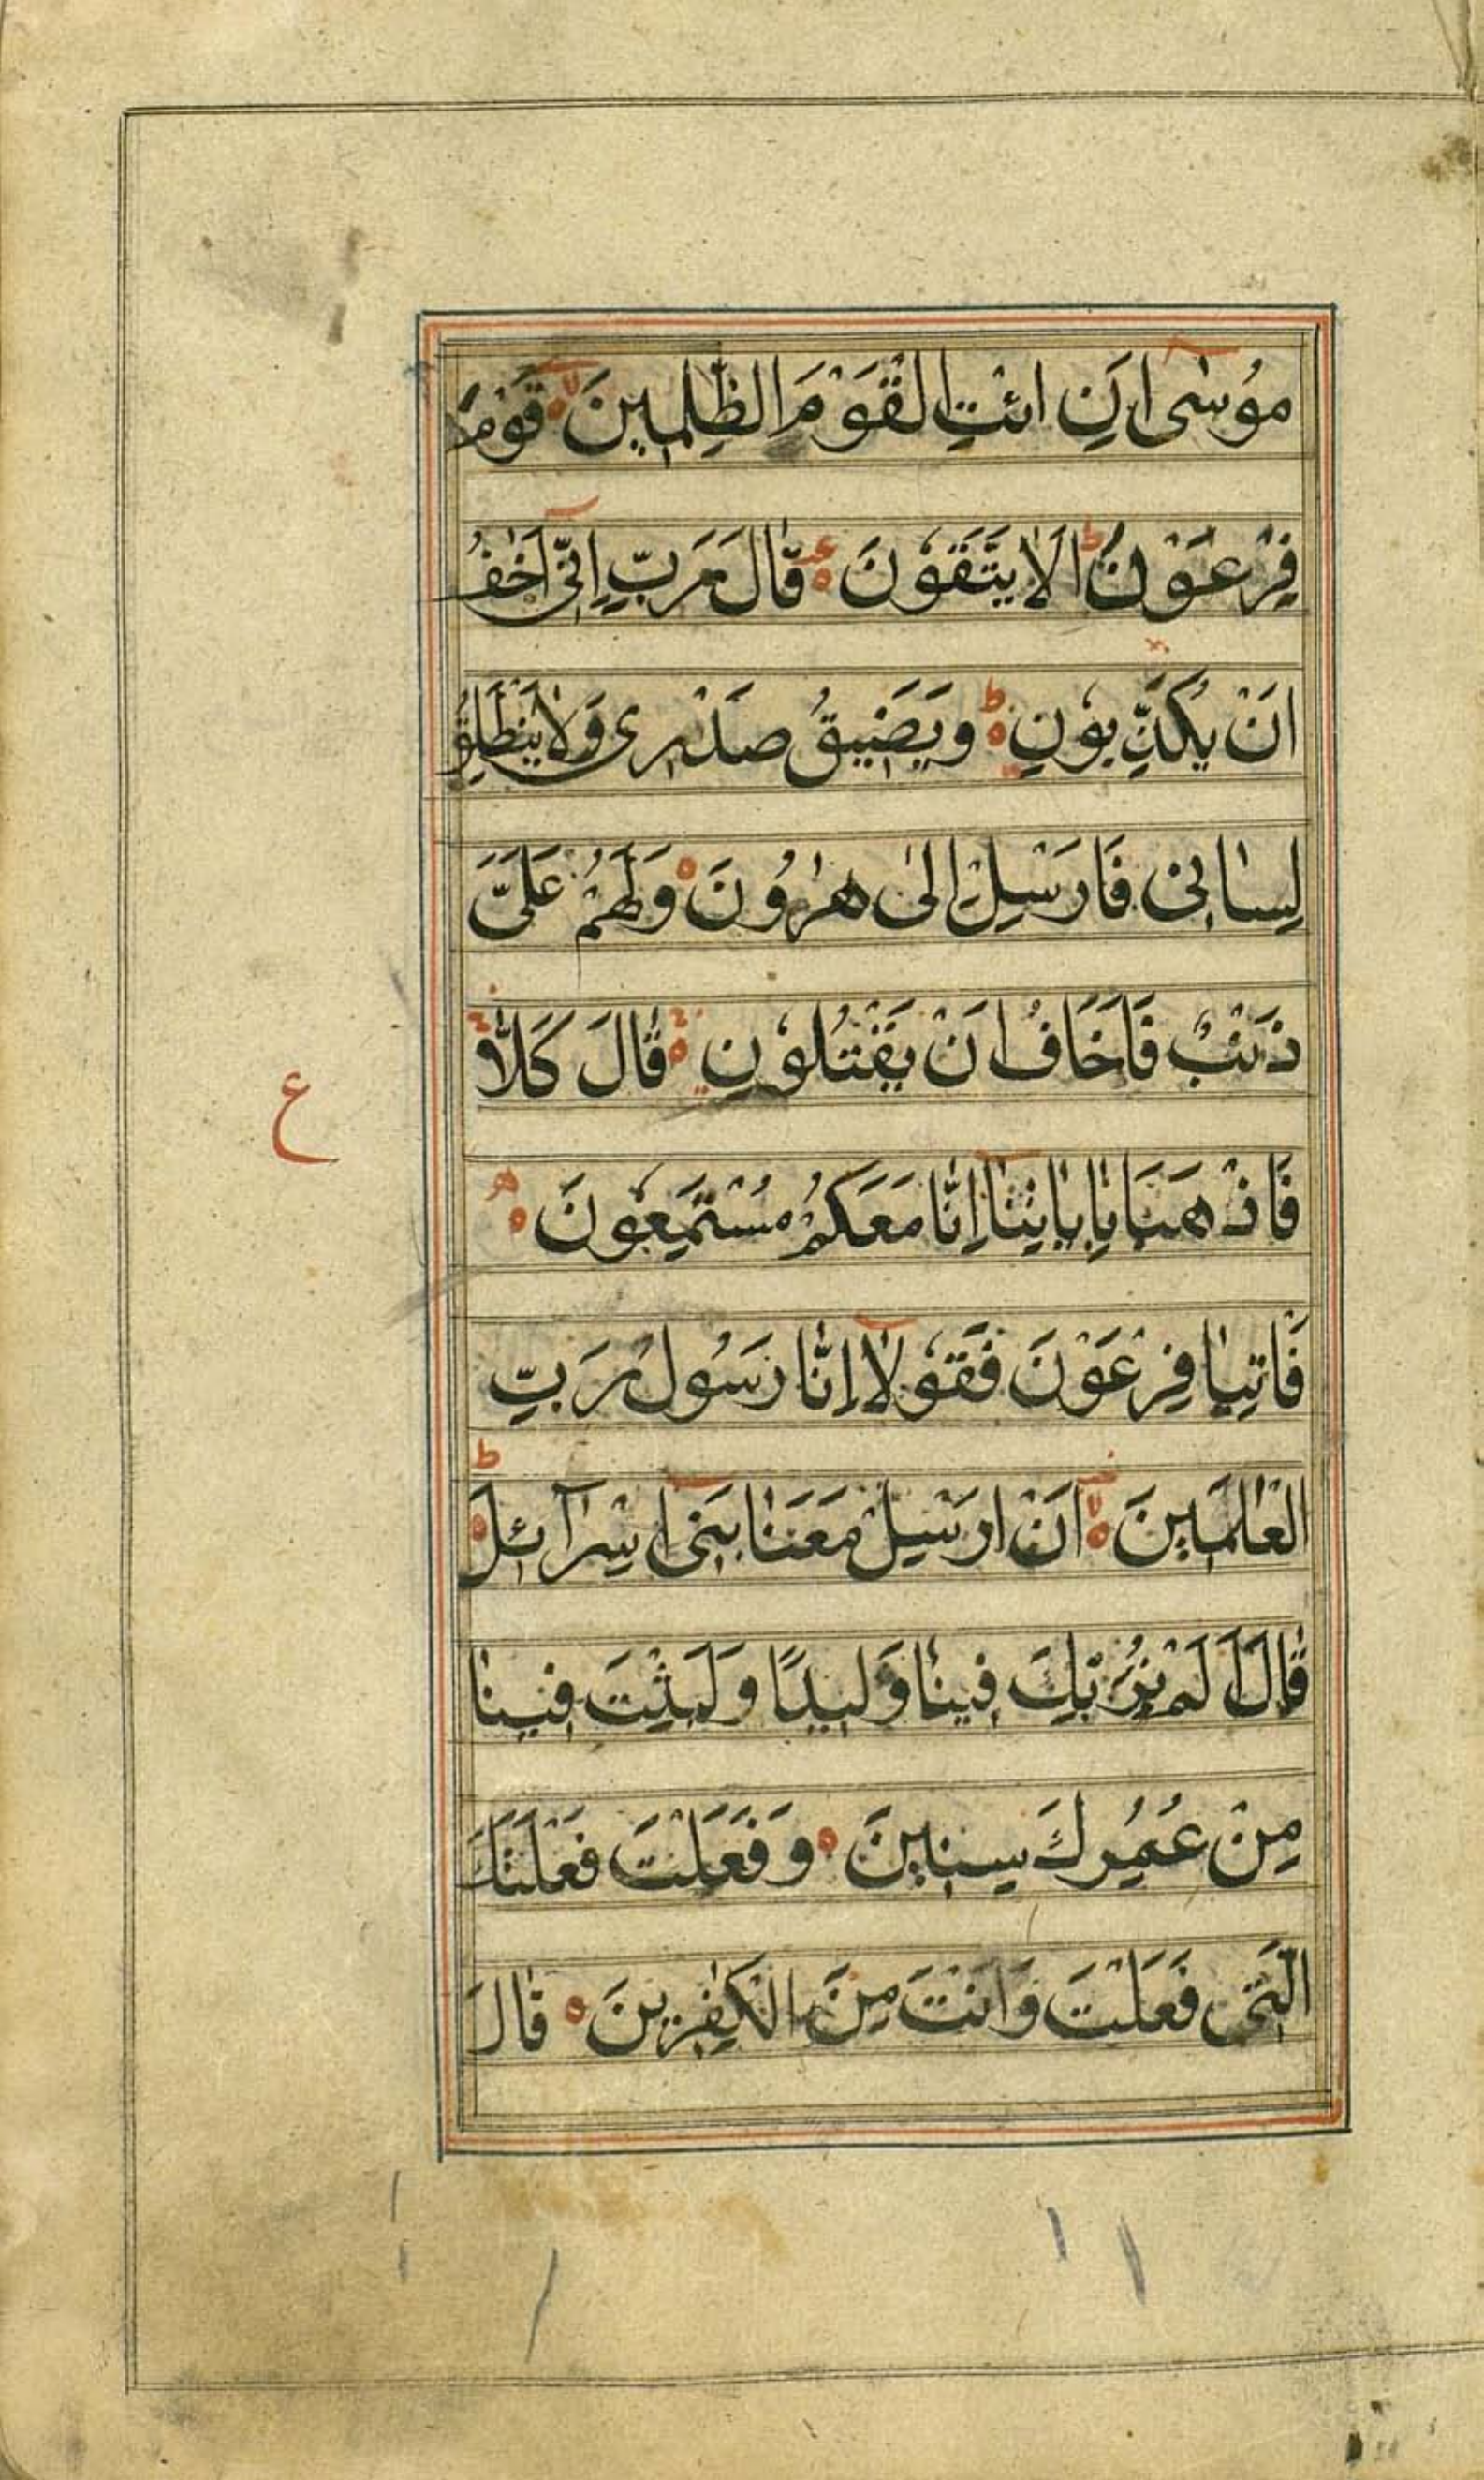 مُوسٰٓى اَنِ ائْتِ الْقَوْمَ الظّٰلِمِينَ ۙ قَوْمَ
فِرْعَوْنَ ؕ اَلَا يَتَّقُونَ ۝ قَالَ رَبِّ اِنِّىٓ اَخَفُ
اَنْ يُكَذِّبُونِ ؕ وَيَضِيقُ صَدْرِى وَلَا يَنْطَلِقُ
لِسَانِى فَارْسِلْ اِلٰى هٰرُونَ ۝ وَلَهُمْ عَلَىَّ
ذَنْبٌ فَاَخَافُ اَنْ يَقْتُلُونِ ۝ قَالَ كَلَّا ۚ
ع
فَاذْهَبَا بِاٰيٰتِنَآ اِنَّا مَعَكُمْ مُسْتَمِعُونَ ۝
فَاتِيَا فِرْعَوْنَ فَقُولَآ اِنَّا رَسُولُ رَبِّ
الْعٰلَمِينَ ۙ اَنْ اَرْسِلْ مَعَنَا بَنِىٓ اِسْرَآئِلَ ؕ
قَالَ اَلَمْ نُرَبِّكَ فِينَا وَلِيدًا وَلَبِثْتَ فِينَا
مِنْ عُمُرِكَ سِنِينَ ۝ وَفَعَلْتَ فَعْلَتَكَ
الَّتِى فَعَلْتَ وَاَنْتَ مِنَ الْكٰفِرِينَ ۝ قَالَ